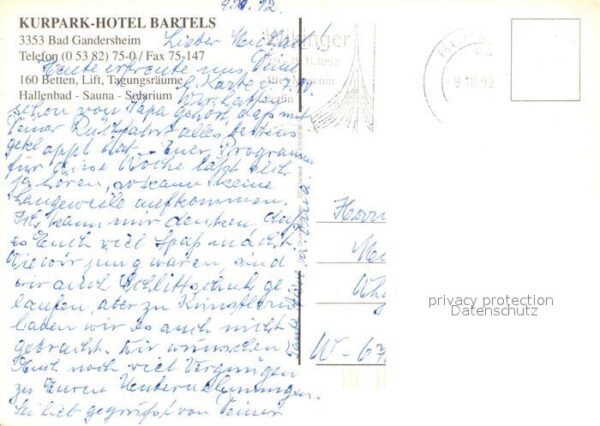 9.10.92.
KURPARK-HOTEL BARTELS
3353 Bad Gandersheim
Telefon (0 53 82) 75-0 / Fax 75-147
160 Betten, Lift, Tagungsräume
Hallenbad - Sauna - Solarium
Lieber Michael!
Heute erfreute uns Deine
Karte v. 7.10.
Wir hatten
schon von Papa gehört, daß mit
Deiner Rückfahrt alles bestens
geklappt hat. Euer Programm
für diese Woche läßt sich
ja hören, so kann keine
Langeweile aufkommen.
Ich kann mir denken, daß
es Euch viel Spaß macht.
Wie wir jung waren sind
wir auch Schlittschuh ge
laufen, aber zu Kunstlauf
haben wir es auch nicht
gebracht. Wir wünschen
Euch noch viel Vergnügen
zu Euren Unternehmungen.
Sei lieb gegrüßt von Deiner
9.10.92
Herrn
W-67
privacy protection
Datenschutz